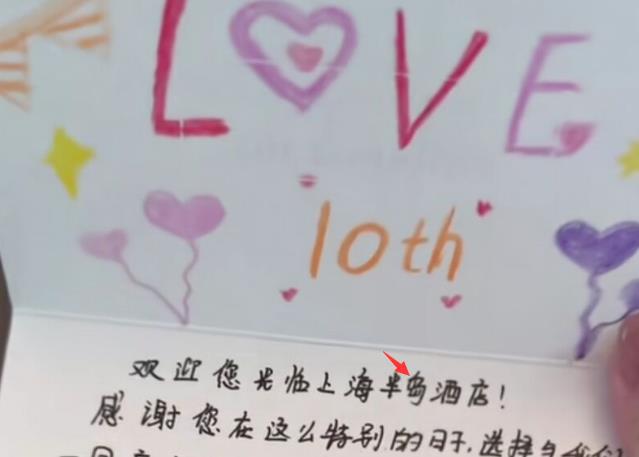 LOVE
10th
欢迎您光临上海半岛酒店！
感谢您在这么特别的日子，选择与我们
一